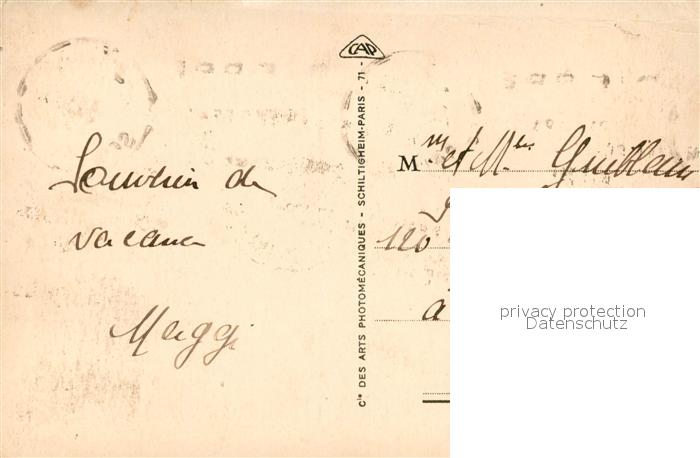 Souvenir de
vacance
Maggi
CAP
Cie DES ARTS PHOTOMÉCANIQUES - SCHILTIGHEIM-PARIS - 71 -
M et Mme
120
à
privacy protection
Datenschutz